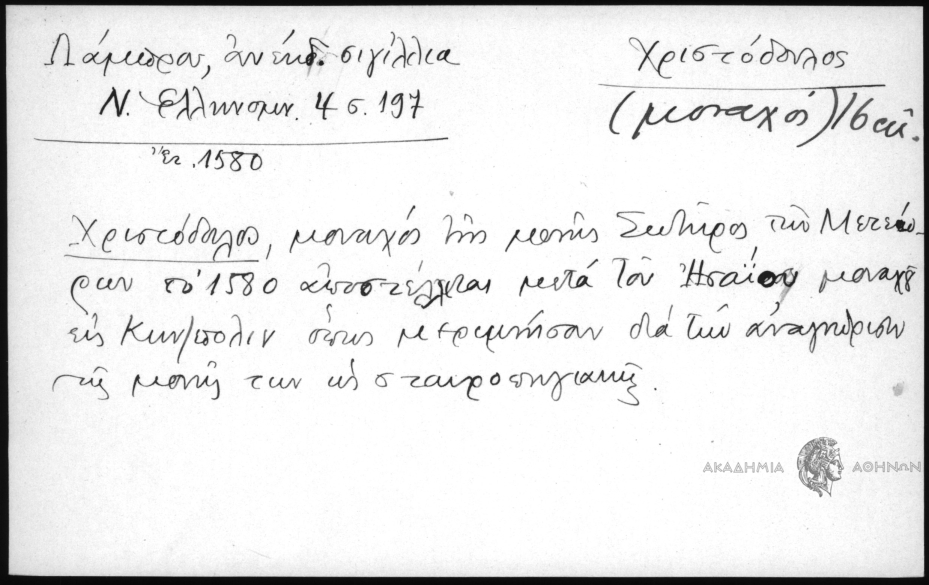 Λάμπρου, ἀνέκδ. σιγίλλια
Ν. Ἑλληνομν. 4 σ. 197
Ἔτ. 1580
Χριστόδουλος
(μοναχός) 16 αἰ.
Χριστόδουλος, μοναχός τῆς μονῆς Σωτῆρος τῶν Μετεώ-
ρων τό 1580 ἀποστέλλεται μετά τοῦ Ἡσαΐου μοναχοῦ
εἰς Κων/πολιν ὅπως μεριμνήσουν διά τήν ἀναγνώρισιν
τῆς μονῆς των ὡς σταυροπηγιακῆς.
ΑΚΑΔΗΜΙΑ ΑΘΗΝΩΝ